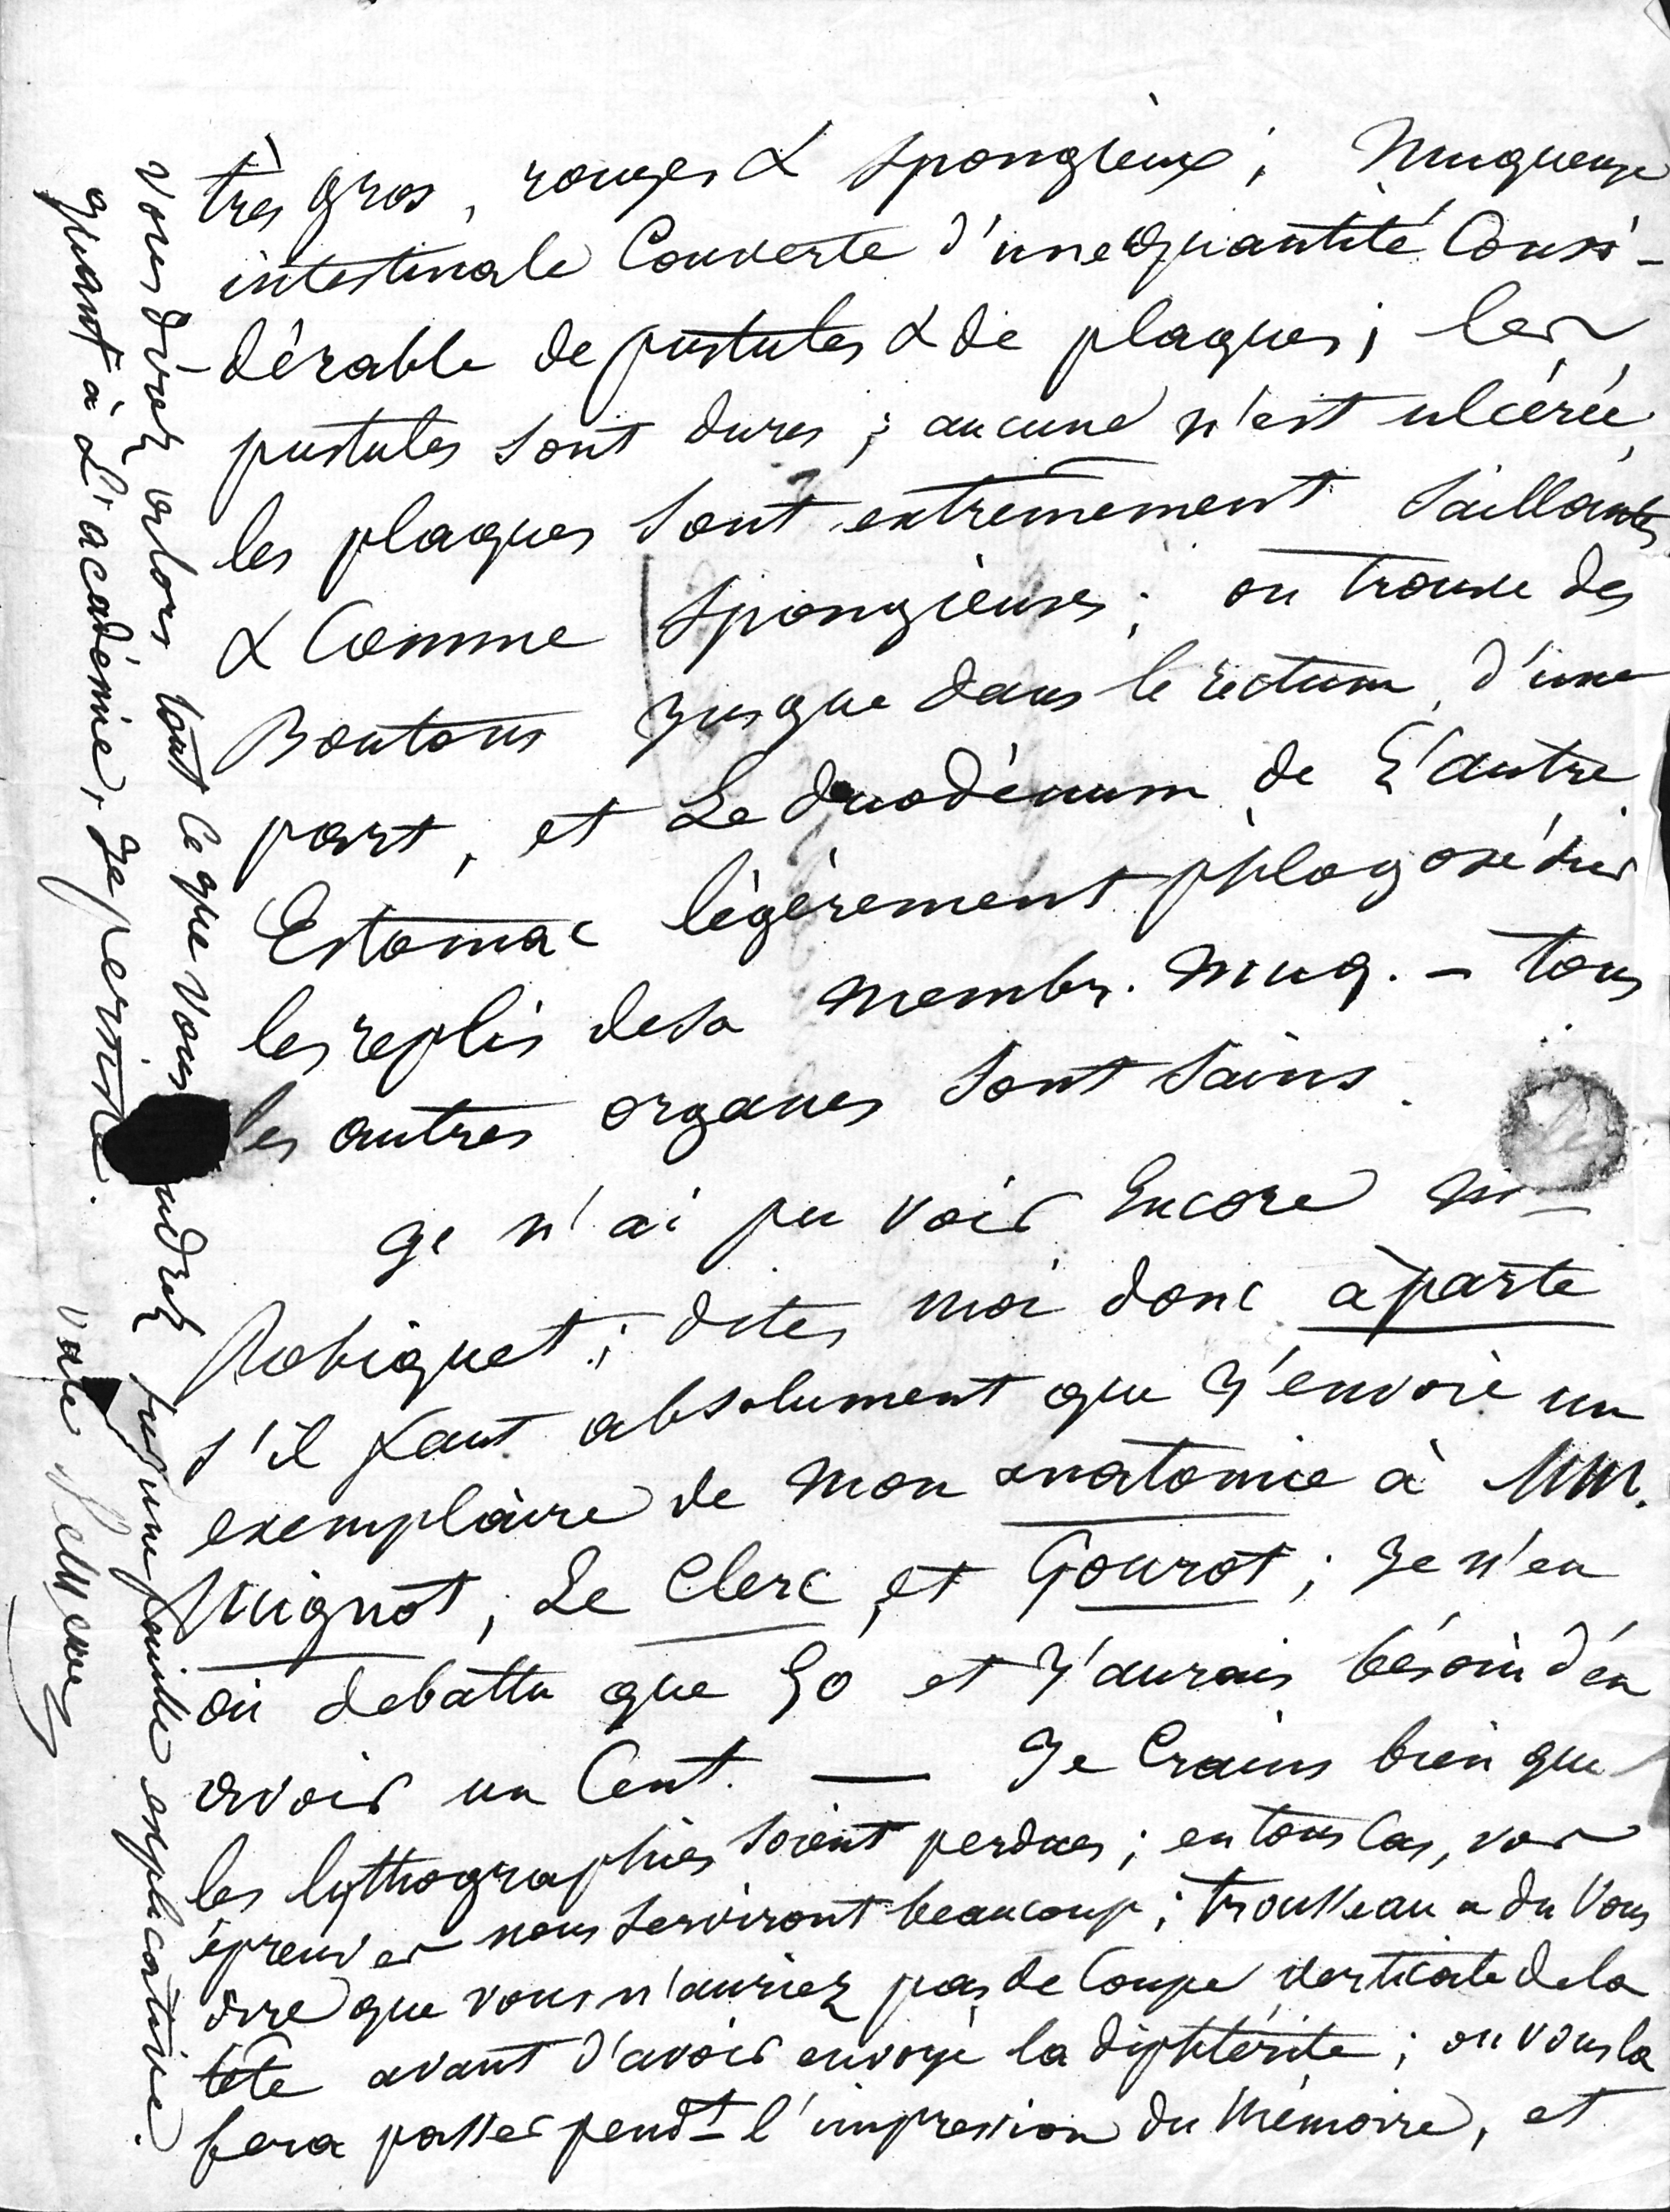 très gros, rouges & spongieux ; Muqueuse
intestinale Couverte d'une quantité Consi-
dérable de pustules & de plaques ; les
pustules sont dures ; aucune n'est ulcérée,
les plaques sont extremement saillantes
& Comme spongieuses ; on trouve des
Boutons jusque dans le rectum, d'une
part, et Le duodénum de L'autre.
Estomac légèrement phlogosé sur
les replis de sa membr. muq. – tous
les autres organes sont sains.
Je n'ai pu voir Encore Mr
Robiquet ; dites moi donc àparte
s'il faut absolument que J'envoie un
exemplaire de mon anatomie à MM.
Mignot, Le Clerc, et Gourot ; Je n'en
ai debattu que 50 et J'aurais bésoin d'en
avoir un Cent. — Je Crains bien que
les lythographies soient perdues ; en tous Cas, vos
épreuves nous serviront beaucoup ; trousseau a du Vous
dire que vous n'auriez pas de Coupe verticale de la
tête avant d'avoir envoyé la diphtérite ; on vous la
fera passer pendt l'impression du Mémoire, et
vous direz alors tout Ce que vous udrez sur une feuille explicative.
quant à L'académie, Je persiste.
Vale